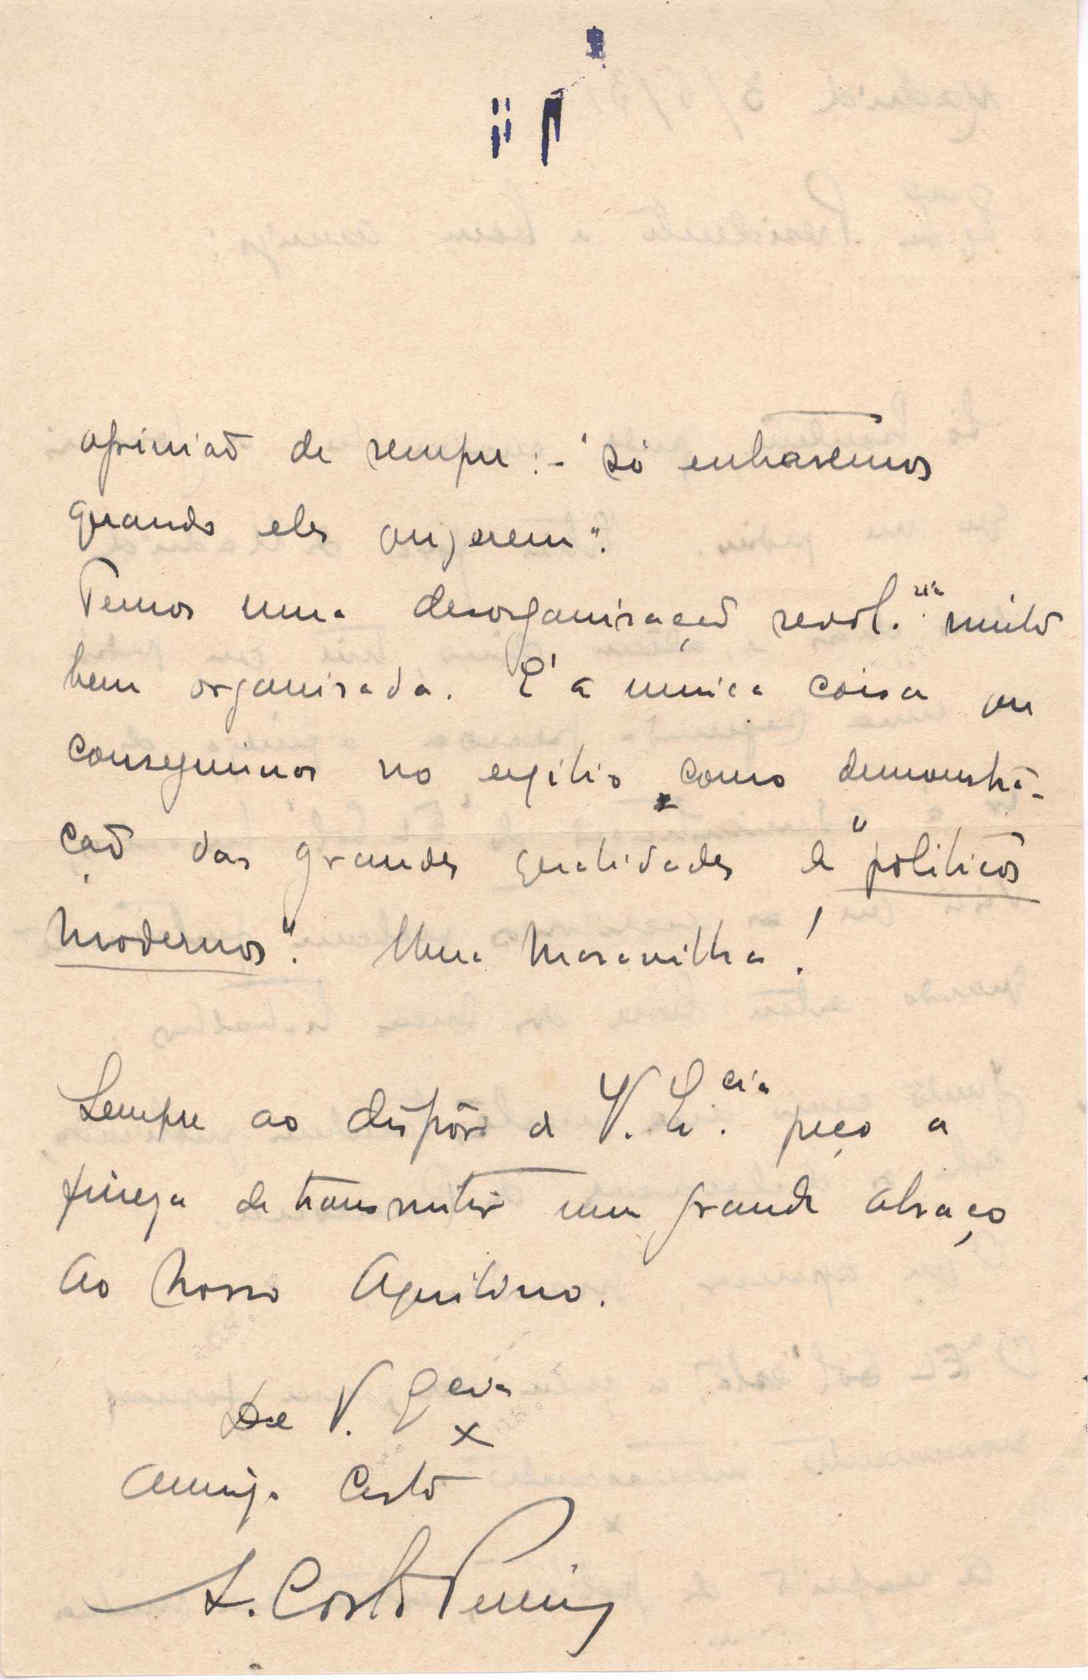 opinião de sempre: - "só entraremos
quando eles quizerem".
Temos uma desorganisação revol.ria muito
bem organisada. É a unica coisa que
conseguimos no exilio como demonstra-
ção das grandes qualidades de "politicos
modernos". Uma maravilha!
Sempre ao dispôr de V. Ex.cia peço a
fineza de transmitir um grande abraço
ao nosso Aquilino.
De V. Excia
Amigo Certo
A. Corte